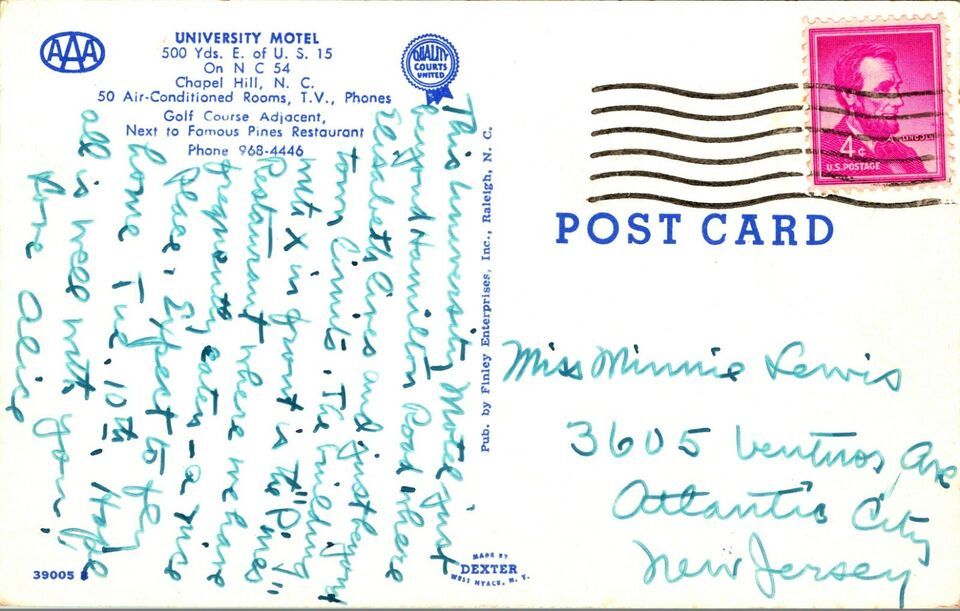 AAA
UNIVERSITY MOTEL
500 Yds. E. of U. S. 15
On N C 54
Chapel Hill, N. C.
50 Air-Conditioned Rooms, T.V., Phones
Golf Course Adjacent,
Next to Famous Pines Restaurant
Phone 968-4446
QUALITY
COURTS
UNITED
This University Motel just
beyond Hamilton Road where
Elisabeth lives and just beyond
town limits. The building
with X in front is the "Pines"
Restaurant where we have
frequently eaten - a nice
place. Expect to fly
home Tue. 10th. Hope
all is well with you!
Love Alice
Pub. by Finley Enterprises, Inc., Raleigh, N. C.
LINCOLN
4¢
U.S. POSTAGE
POST CARD
Miss Minnie Lewis
3605 Ventnor Ave
Atlantic City
New Jersey
MADE BY
DEXTER
WEST NYACK, N. Y.
39005